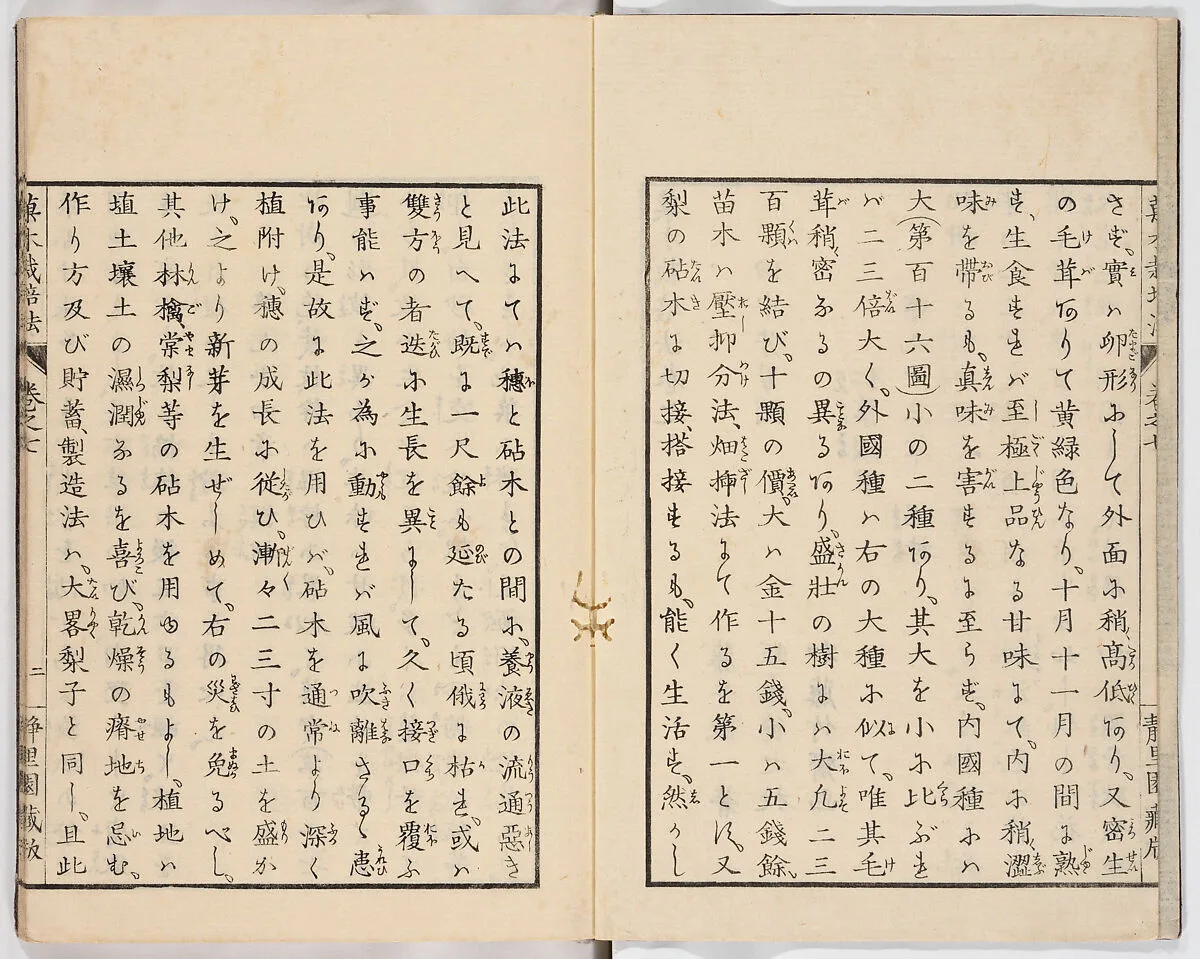 菓木栽培法 卷之七 靜里園藏版
さず、實ハ卵形ふして外面ふ稍、髙低あり、又密生
の毛茸ありて黄緑色なり、十月十一月の間に熟
す、生食すれバ至極上品なる甘味にて、内ふ稍澀
味を帶るも、真味を害するに至らず、内國種ふハ
大(第百十六圖)小の二種あり、其大を小ふ比ぶれ
バ二三倍大く、外國種ハ右の大種ふ似て、唯其毛
茸稍、密なるの異るあり、盛壯の樹にハ大凢二三
百顆を結び、十顆の價、大ハ金十五錢、小ハ五錢餘、
苗木ハ壓抑分法、畑揷法にて作るを第一とす、又
梨の砧木に切接、搭接するも、能く生活す、然かし
此法にてハ穗と砧木との間ふ、養液の流通惡き
と見へて、既に一尺餘も延たる頃俄に枯れ、或ハ
雙方の者迭ふ生長を異にして、久く接口を覆ふ
事能ハず、之が為ふ動すれバ風に吹離さるゝ患
あり、是故に此法を用ひバ、砧木を通常より深く
植附け、穗の成長ふ従ひ、漸々二三寸の土を盛か
け、之より新芽を生ぜしめて、右の災を免るべし、
其他林檎、棠梨等の砧木を用ゆるもよし、植地ハ
埴土壤土の濕潤なるを喜び、乾燥の瘠地を忌む、
作り方及び貯蓄、製造法ハ、大畧梨子と同し、且此
菓木栽培法 卷之七 二 静里園藏版